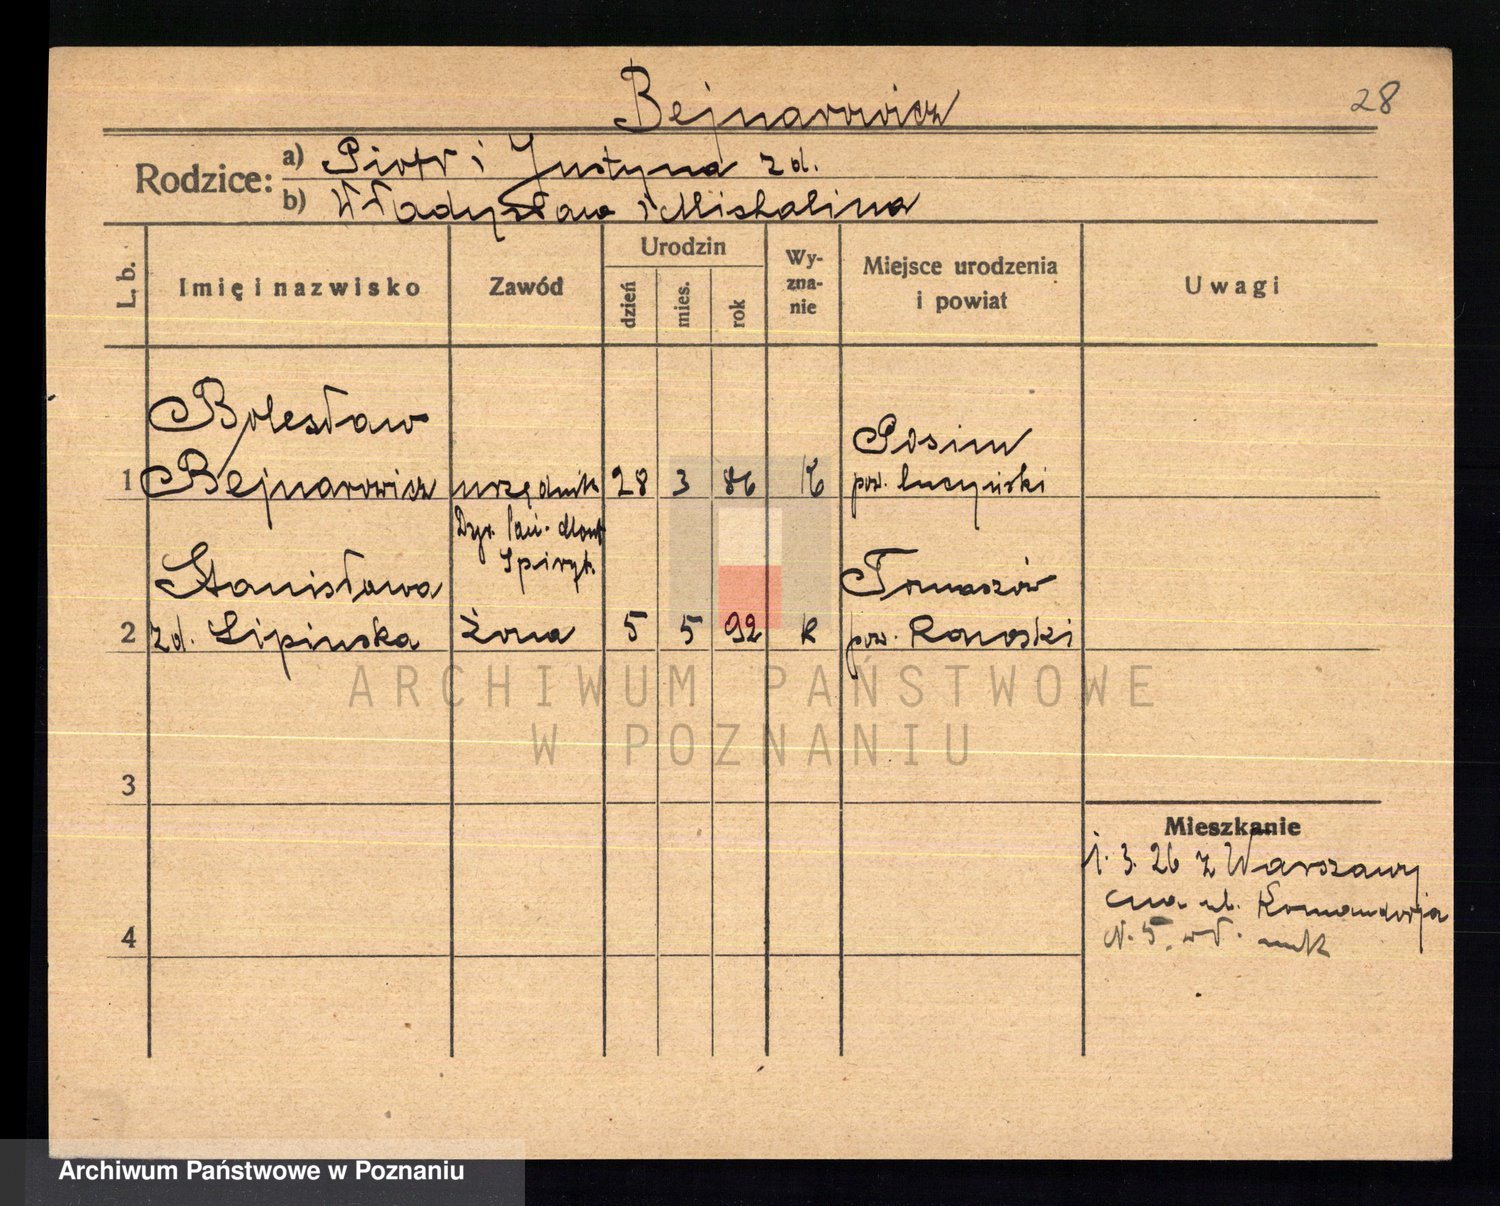 Bejnarowicz
28
Rodzice: a) Piotr i Justyna z d.
b) Władysław i Michalina
L. b.
Imię i nazwisko
Zawód
Urodzin
dzień
mies.
rok
Wy-
zna-
nie
Miejsce urodzenia
i powiat
Uwagi
Bolesław
1 Bejnarowicz urzędnik 28 3 86 K Posim
pow. lucyński
Dyr. Pań. Mon.
Spiryt.
Stanisława Tomaszów
2 z d. Lipińska żona 5 5 92 K pow. Rawski
ARCHIWUM PAŃSTWOWE
W POZNANIU
3
4
Mieszkanie
1. 3. 26 z Warszawy
ul. Komandorja
N. 5. wł.
Archiwum Państwowe w Poznaniu